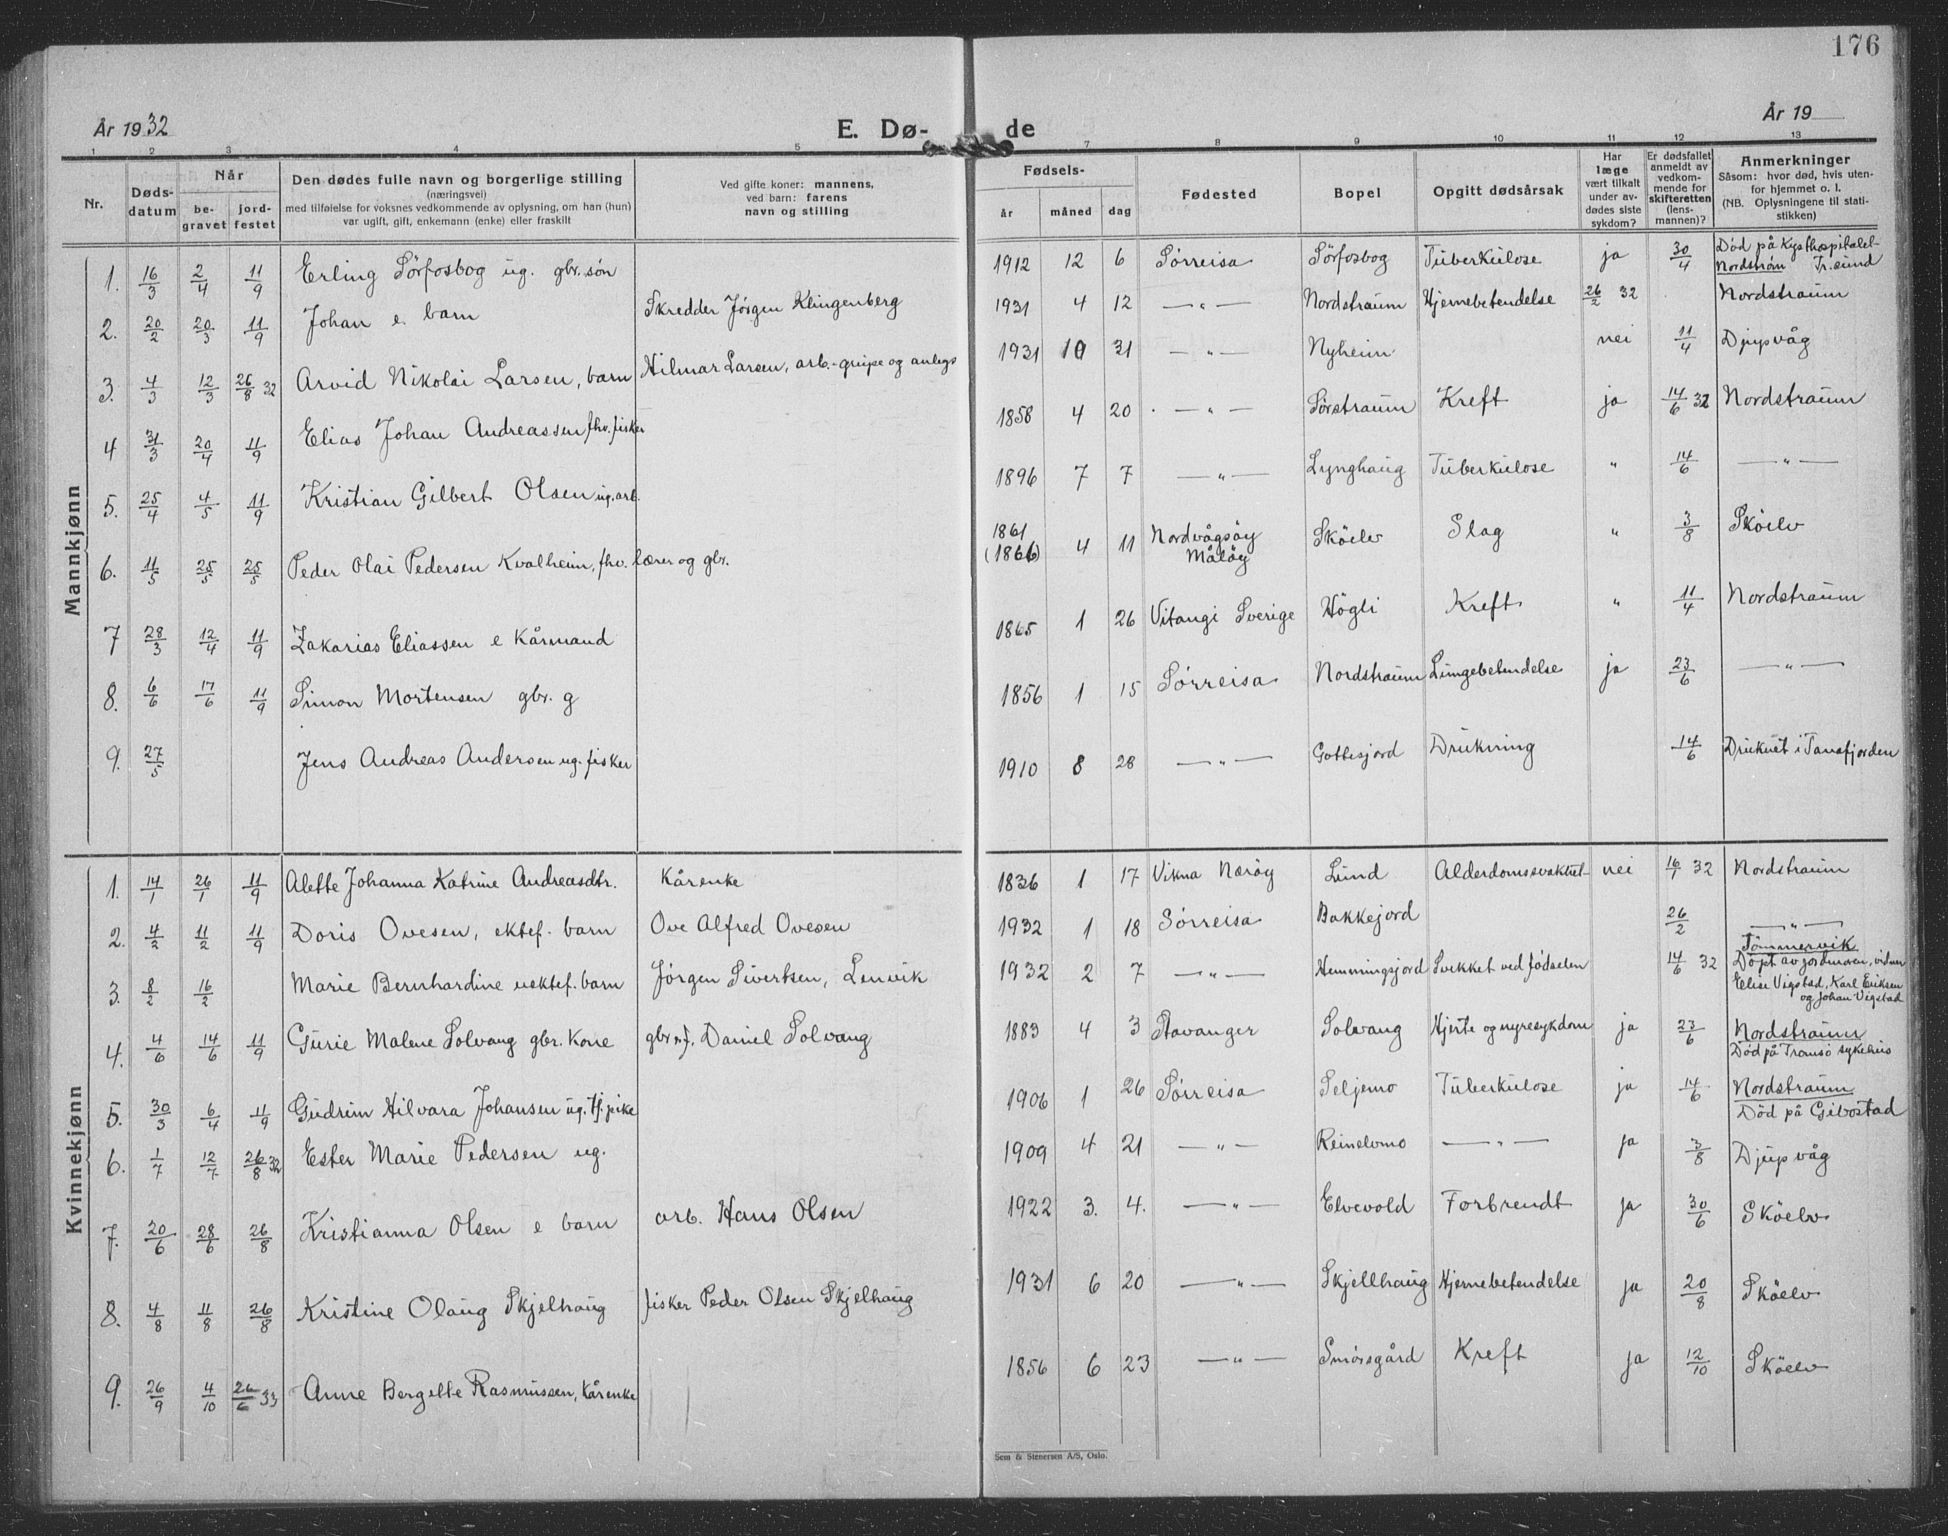 176
År 1932
E. Dø-
de
År 19
1 2 3 4 5 7 8 9 10 11 12 13
Nr.
Døds-
datum
Når
be-
gravet
jord-
festet
Den dødes fulle navn og borgerlige stilling
(næringsvei)
med tilføielse for voksnes vedkommende av oplysning, om han (hun)
var ugift, gift, enkemann (enke) eller fraskilt
Ved gifte koner: mannens,
ved barn: farens
navn og stilling
Fødsels-
år måned dag
Fødested
Bopel
Opgitt dødsårsak
Har
læge
vært tilkalt
under av-
dødes siste
sykdom?
Er dødsfallet
anmeldt av
vedkom-
mende for
skifteretten
(lens-
mannen)?
Anmerkninger
Såsom: hvor død, hvis uten-
for hjemmet o. l.
(NB. Oplysningene til stati-
stikken)
Mannkjønn
1. 16/3 2/4 11/9 Erling Sörfosbog ug. gbr. sön 1912 12 6 Sørreisa Sörfosbog Tuberkulose ja 30/4 Död på Kysthospitalet
Nordstrøm Tr. sund
2. 20/2 20/3 11/9 Johan e. barn Skredder Jörgen Klingenberg 1931 4 12 —„— Nordstraum Hjernebetendelse 26/2 32 Nordstraum
3. 4/3 12/3 26/8 32 Arvid Nikolai Larsen, barn Hilmar Larsen, arb. 1931 10 31 —„— Nyheim nei 11/4 Djupvåg
4 31/3 20/4 11/9 Elias Johan Andreassen fhv. fisker 1858 4 20 —„— Sörstraum Kreft ja 14/6 32 Nordstraum
5. 25/4 4/5 11/9 Kristian Gilbert Olsen ug. arb. 1896 7 7 —„— Lynghaug Tuberkulose „ 14/6 —„—
6. 11/5 25/5 25/5 Peder Olai Pedersen Kvalheim, fhv. lærer og gbr. 1861
(1866) 4 11 Nordvågsöy
Målöy Sköelv Slag „ 3/8 Sköelv
7 28/3 12/4 11/9 Zakarias Eliassen e Kårmand 1865 1 26 Vitangi Sverige Högli Kreft „ 11/4 Nordstraum
8. 6/6 17/6 11/9 Simon Mortensen gbr. g 1856 1 15 Sørreisa Nordstraum Lungebetendelse ja 23/6 —„—
9. 27/5 Jens Andreas Andersen ug. fisker 1910 8 28 —„— Gottesjord Drukning 14/6 Druknet i Tanafjorden
Kvinnekjønn
1. 14/1 26/1 11/9 Alette Johanna Katrine Andreasdtr. Kårenke 1836 1 17 Vikna Nærøy Lund Alderdomssvakhet nei 16/1 32 Nordstraum
2. 4/2 11/2 11/9 Doris Ovesen, ektef. barn Ove Alfred Ovesen 1932 1 18 Sørreisa Bakkejord 26/2 —„—
3. 8/2 16/2 Marie Bernhardine uektef. barn Jörgen Sivertsen, Lenvik 1932 2 7 —„— Hemmingsjord Svekket ved fødselen 14/6 32 Tömmervik
Döpt av jordmoren, vidner
Elise Vigstad, Karl Eriksen
og Johan Vigstad
4. 4/6 14/6 11/9 Gurie Malene Solvang gbr. Kone gbr. Daniel Solvang 1883 4 3 Stavanger Solvang Hjerte og nyresykdom ja 23/6 Nordstraum
Død på Tromsö sykehus
5. 30/3 6/4 11/9 Gudrun Hilvara Johansen ug. tj. pike 1906 1 26 Sørreisa Seljemo Tuberkulose ja 14/6 Nordstraum
Död på Gibostad
6. 1/7 12/7 26/8 32 Ester Marie Pedersen ug. 1909 4 21 —„— Reinelvmo —„— ja 3/8 Djupvåg
7. 20/6 28/6 26/8 Kristianna Olsen e barn arb. Hans Olsen 1922 3. 4. —„— Elvevold Forbrendt ja 30/6 Sköelv
8. 4/8 11/8 26/8 Kristine Olaug Skjelhaug fisker Peder Olsen Skjelhaug 1931 6 20 —„— Skjellhaug Hjernebetendelse ja 20/8 Sköelv
9. 26/9 4/10 26/6 33 Anne Bergette Rasmussen, Kårenke 1856 6 23 —„— Smörsgård Kreft ja 12/10 Sköelv
Sem & Stenersen A/S, Oslo.